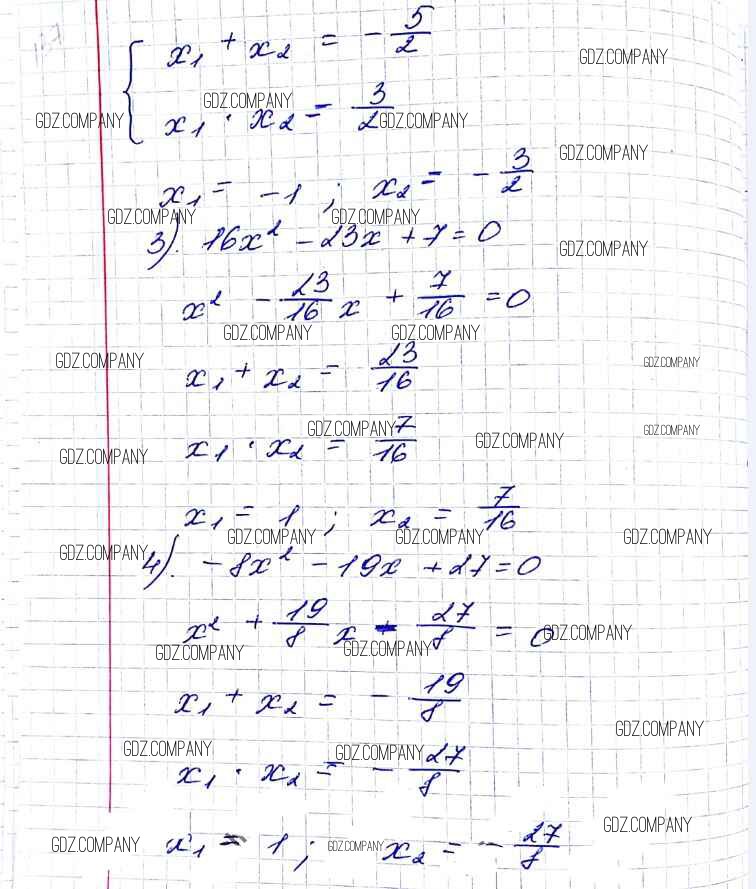 x₁ + x₂ = -5/2
GDZ.COMPANY
GDZ.COMPANY
x₁ · x₂ = 3/2
GDZ.COMPANY
GDZ.COMPANY
GDZ.COMPANY
x₁ = -1 ; x₂ = -3/2
GDZ.COMPANY
GDZ.COMPANY
3). 16x² - 23x + 7 = 0
GDZ.COMPANY
x² - 23/16 x + 7/16 = 0
GDZ.COMPANY
GDZ.COMPANY
GDZ.COMPANY
GDZ.COMPANY
x₁ + x₂ = 23/16
GDZ.COMPANY
GDZ.COMPANY
GDZ.COMPANY
x₁ · x₂ = 7/16
GDZ.COMPANY
x₁ = 1 ; x₂ = 7/16
GDZ.COMPANY
GDZ.COMPANY
GDZ.COMPANY
GDZ.COMPANY
4). -8x² - 19x + 27 = 0
x² + 19/8 x - 27/8 = 0
GDZ.COMPANY
GDZ.COMPANY
GDZ.COMPANY
x₁ + x₂ = -19/8
GDZ.COMPANY
GDZ.COMPANY
GDZ.COMPANY
x₁ · x₂ = -27/8
GDZ.COMPANY
GDZ.COMPANY
x₁ = 1 ; x₂ = -27/8
GDZ.COMPANY